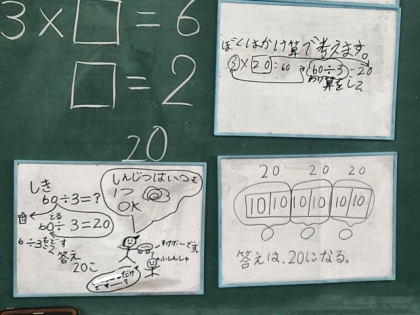 3×□=6
□=2
20
ぼくはかけ算で考えます。
③×20=60 (60÷3)=20
わり算をして
しき
60÷3=?
とる
60÷3=20
6÷3
答え
20こ
しんじつはいつも
1つ
OK
20 20 20
10 10 10 10 10 10
答えは、20になる。